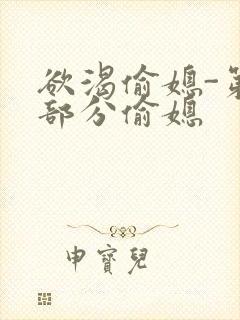 欲渴偷媳-第
部分偷媳
申寶兒